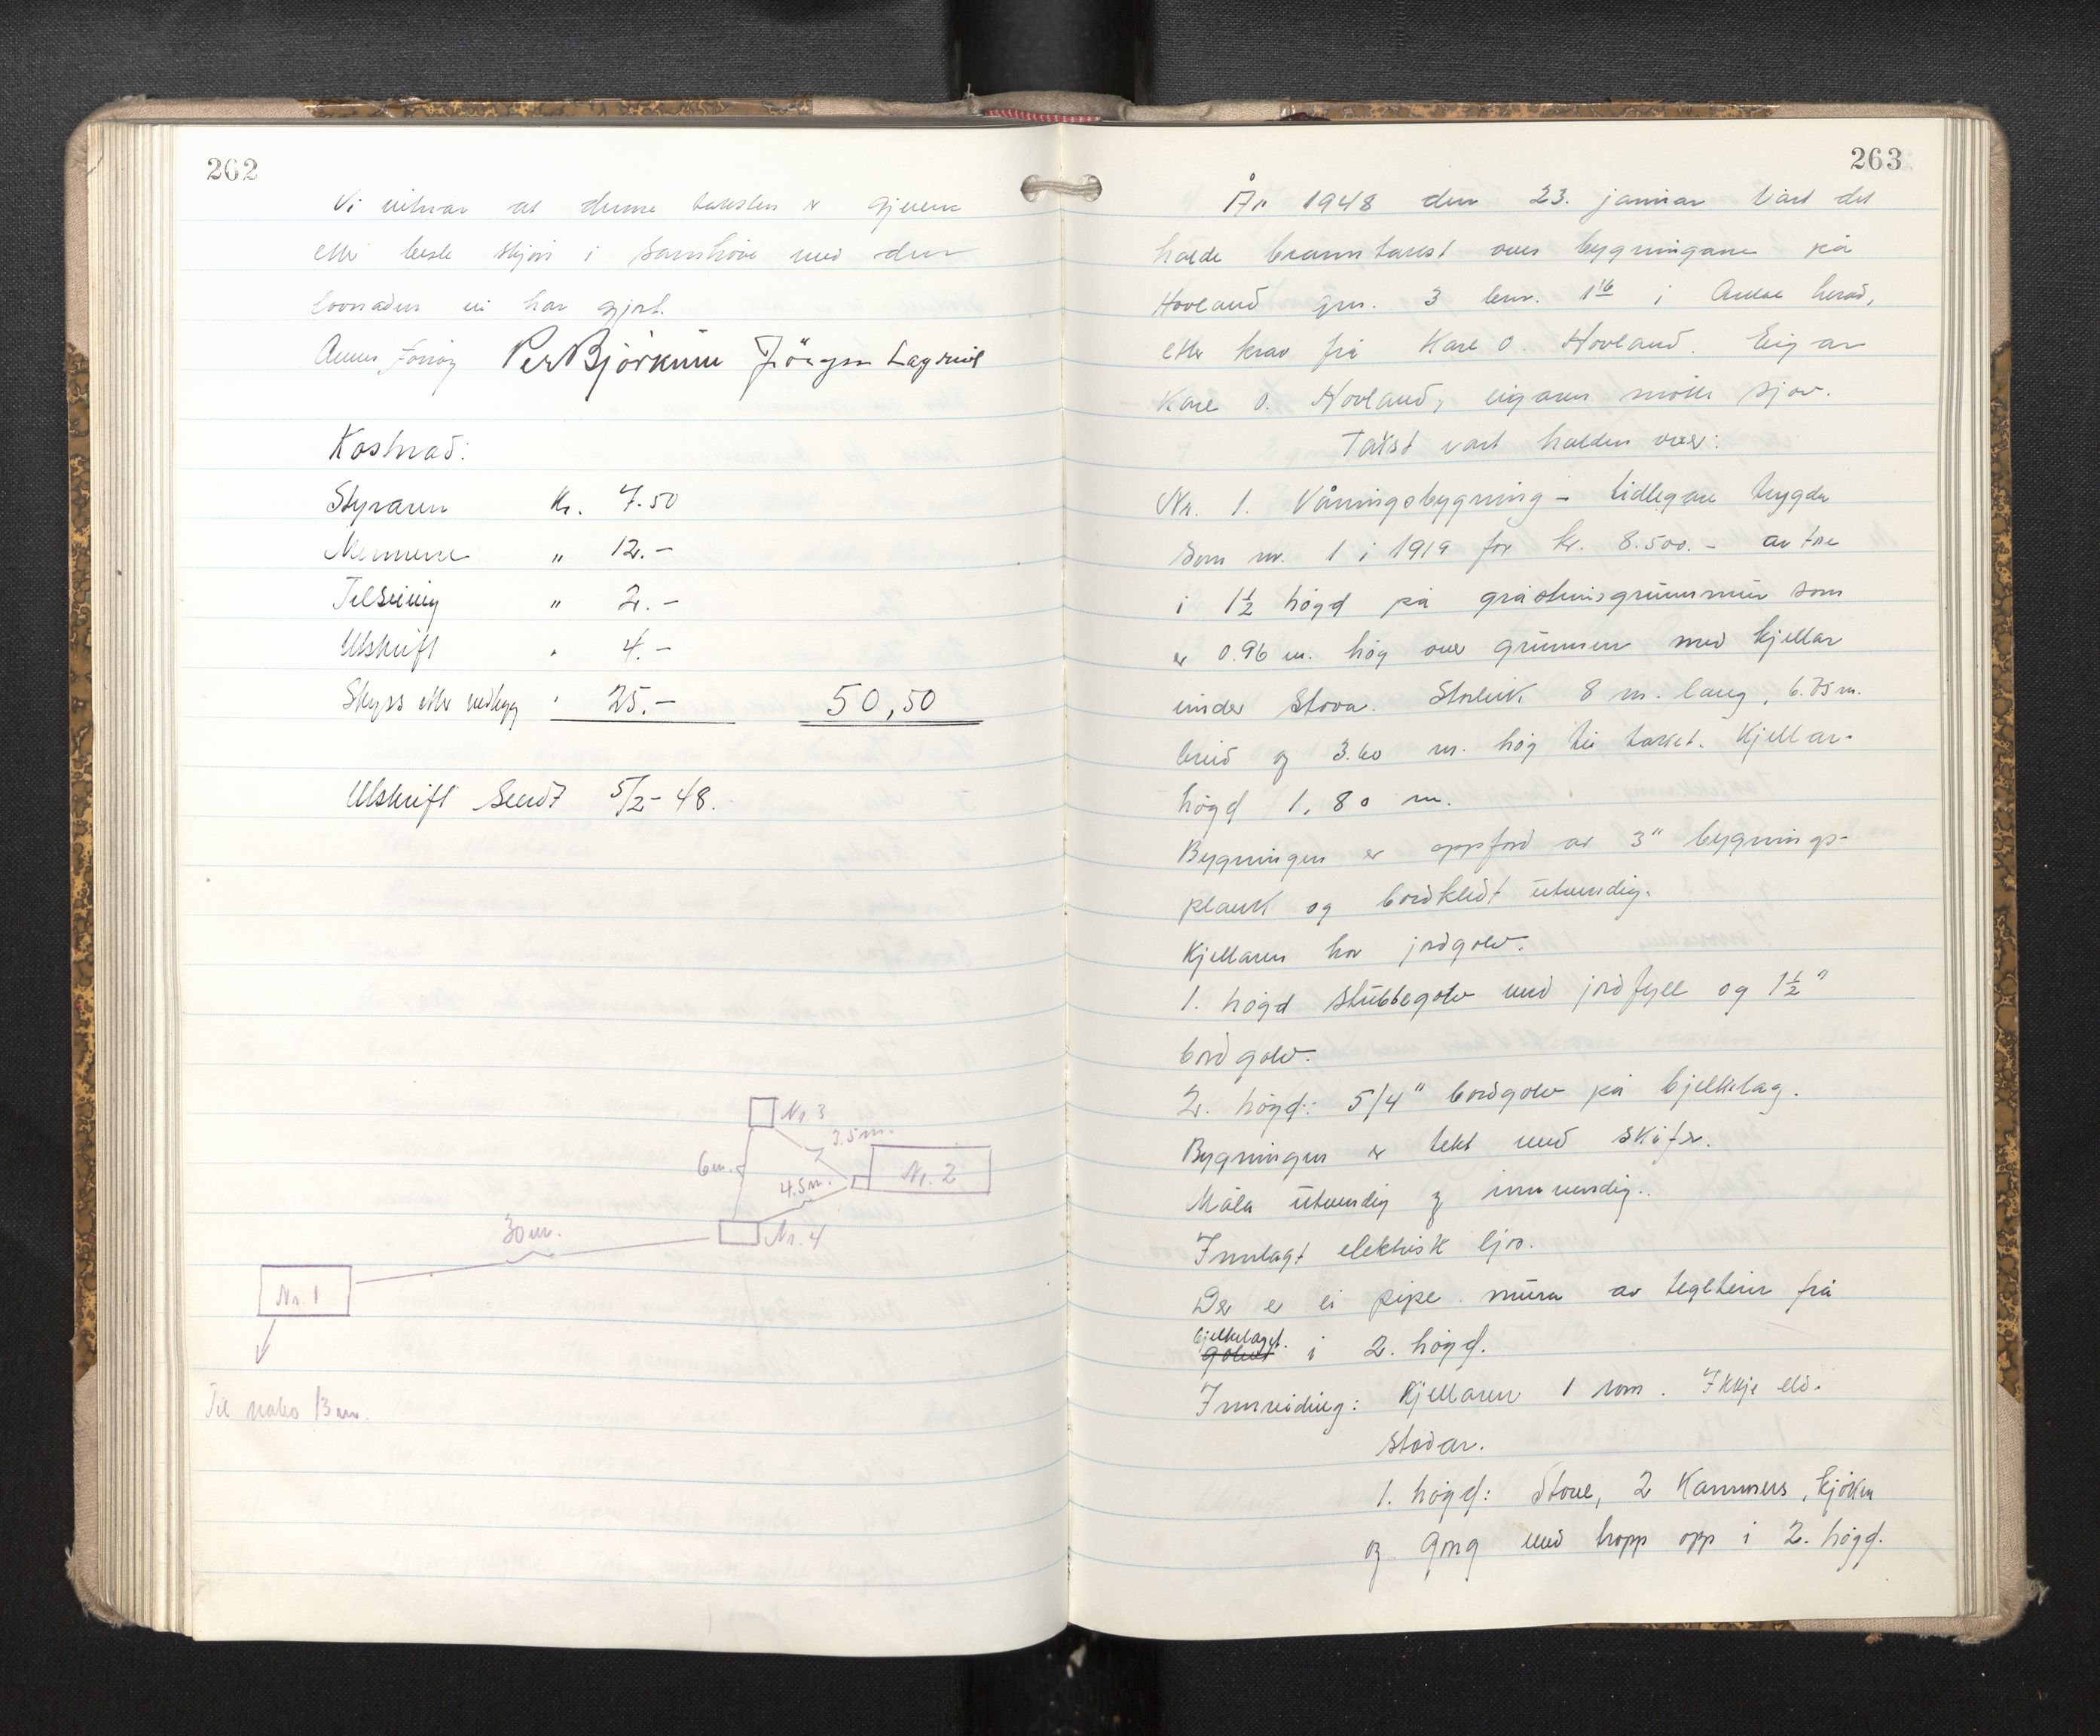 262
Vi vitnar at denne taksten er gjeven
etter beste skjøn i samhøve med den
lovnaden vi har gjort.
Per Bjørkum Jörgen
Kostnad:
Styraren Kr. 7.50
Mennene " 12.-
Tilsening " 2.-
Utskrift " 4.-
Skyss etter vedlegg " 25.- 50,50
Utskrift Sendt 5/2-48.
Nr. 3
3.5m.
6m.
4.5m.
Nr. 2
Nr. 4
30m.
Nr. 1
Til nabo 13m.
263
År 1948 den 23. januar vart det
halde branntakst over bygningane på
Hovland gnr. 3 bnr. 116 i herad,
etter krav frå Kåre O. Hovland. Eigar
Kåre O. Hovland, eigaren møtte sjøv.
Takst vart halden over:
Nr. 1. Våningsbygning - tidlegare trygda
som nr. 1 i 1919 for kr. 8.500.- av tre
i 1½ høgd på gråsteinsgrunnmur som
er 0.96 m. høg over grunnen med kjellar
under stova. Storleik 8 m. lang, 6.75 m.
breid og 3.60 m. høg til taket. Kjellar-
høgd 1.80 m.
Bygningen er oppførd av 3" bygnings-
plank og bordkledt utvendig.
Kjellaren har jordgolv.
1. høgd stubbegolv med jordfyll og 1½"
bordgolv.
2. høgd: 5/4" bordgolv på bjelkelag.
Bygningen er tekt med skifer.
Måla utvendig og innvendig.
Innlagt elektrisk ljos.
Der er ei pipe mura av teglstein frå
bjelkelaget
golvet i 2. høgd.
Innreiding: Kjellaren 1 rom. Ikkje eld-
stadar.
1. høgd: Stove, 2 Kammers, kjøken
og gong med tropp opp i 2. høgd.